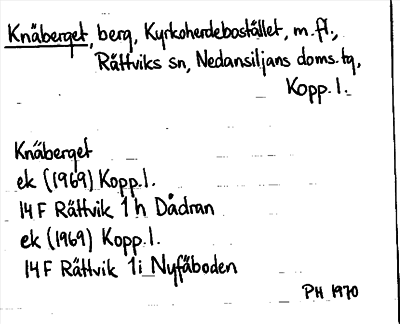 Knäberget, berg, Kyrkoherdebostället, m.fl.,
Rättviks sn, Nedansiljans doms.tg,
Kopp. l.
Knäberget
ek (1969) Kopp. l.
14 F Rättvik 1 h Dådran
ek (1969) Kopp. l.
14 F Rättvik 1 i Nyfäboden
PH 1970